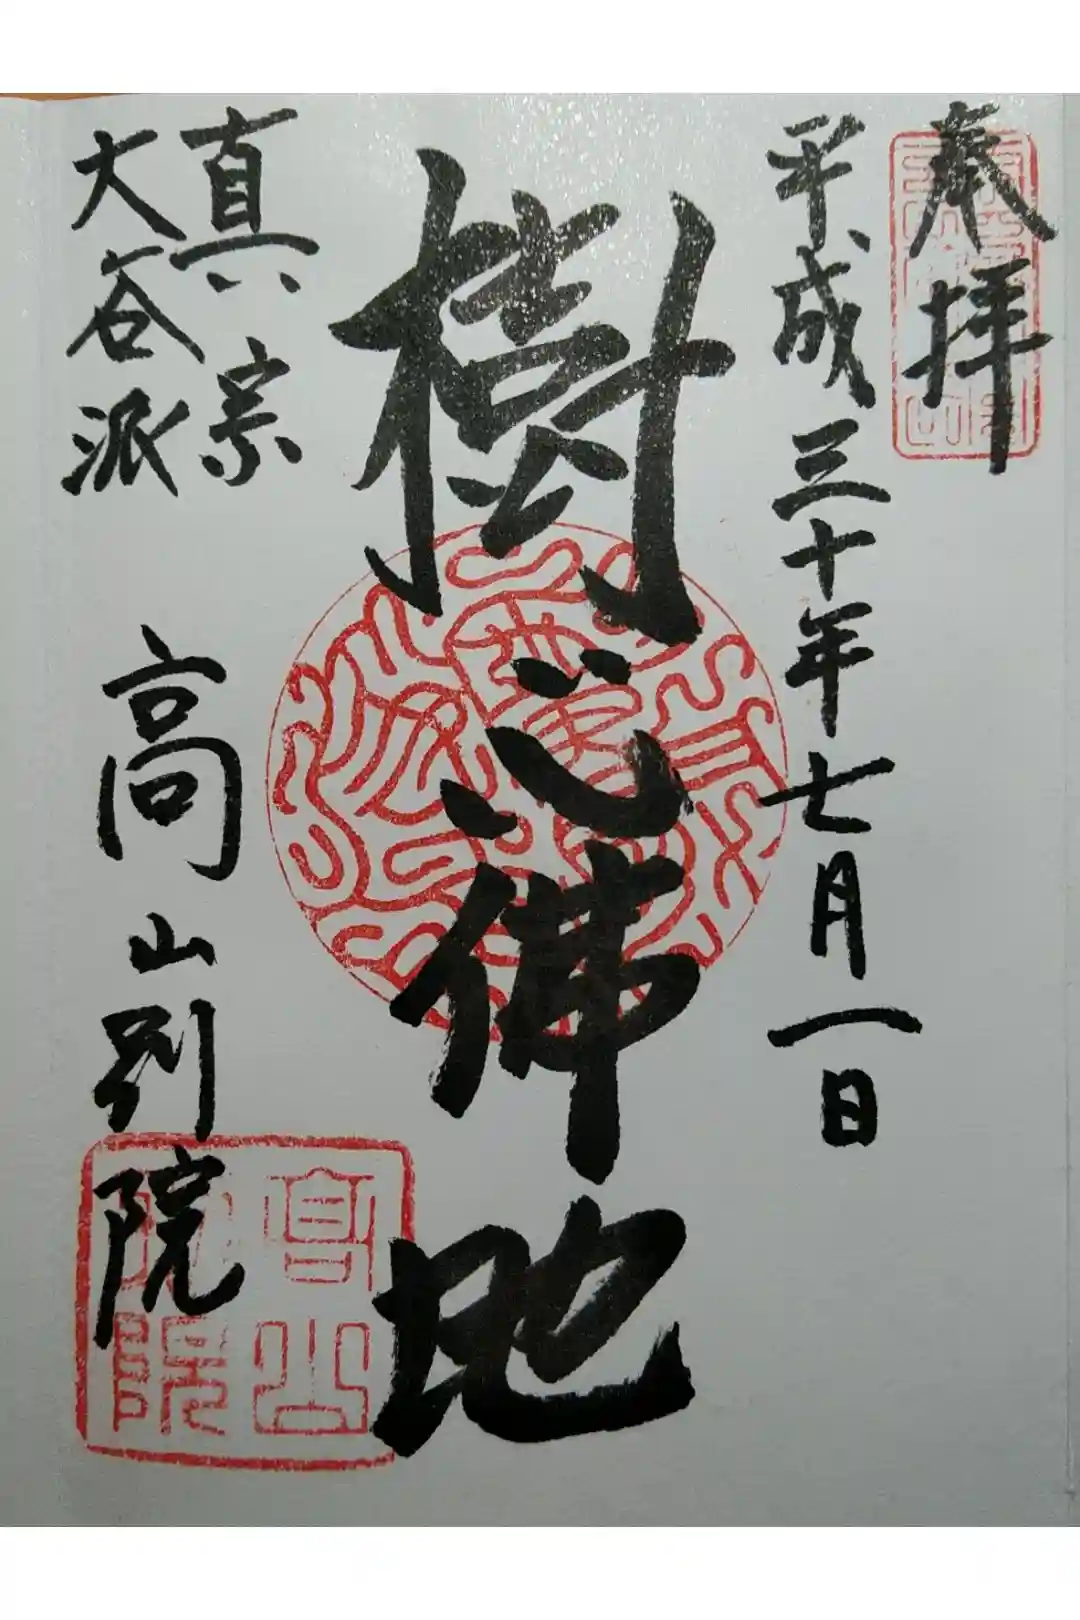 奉拝
平成三十年七月一日
樹心佛地
真宗
大谷派
高山別院